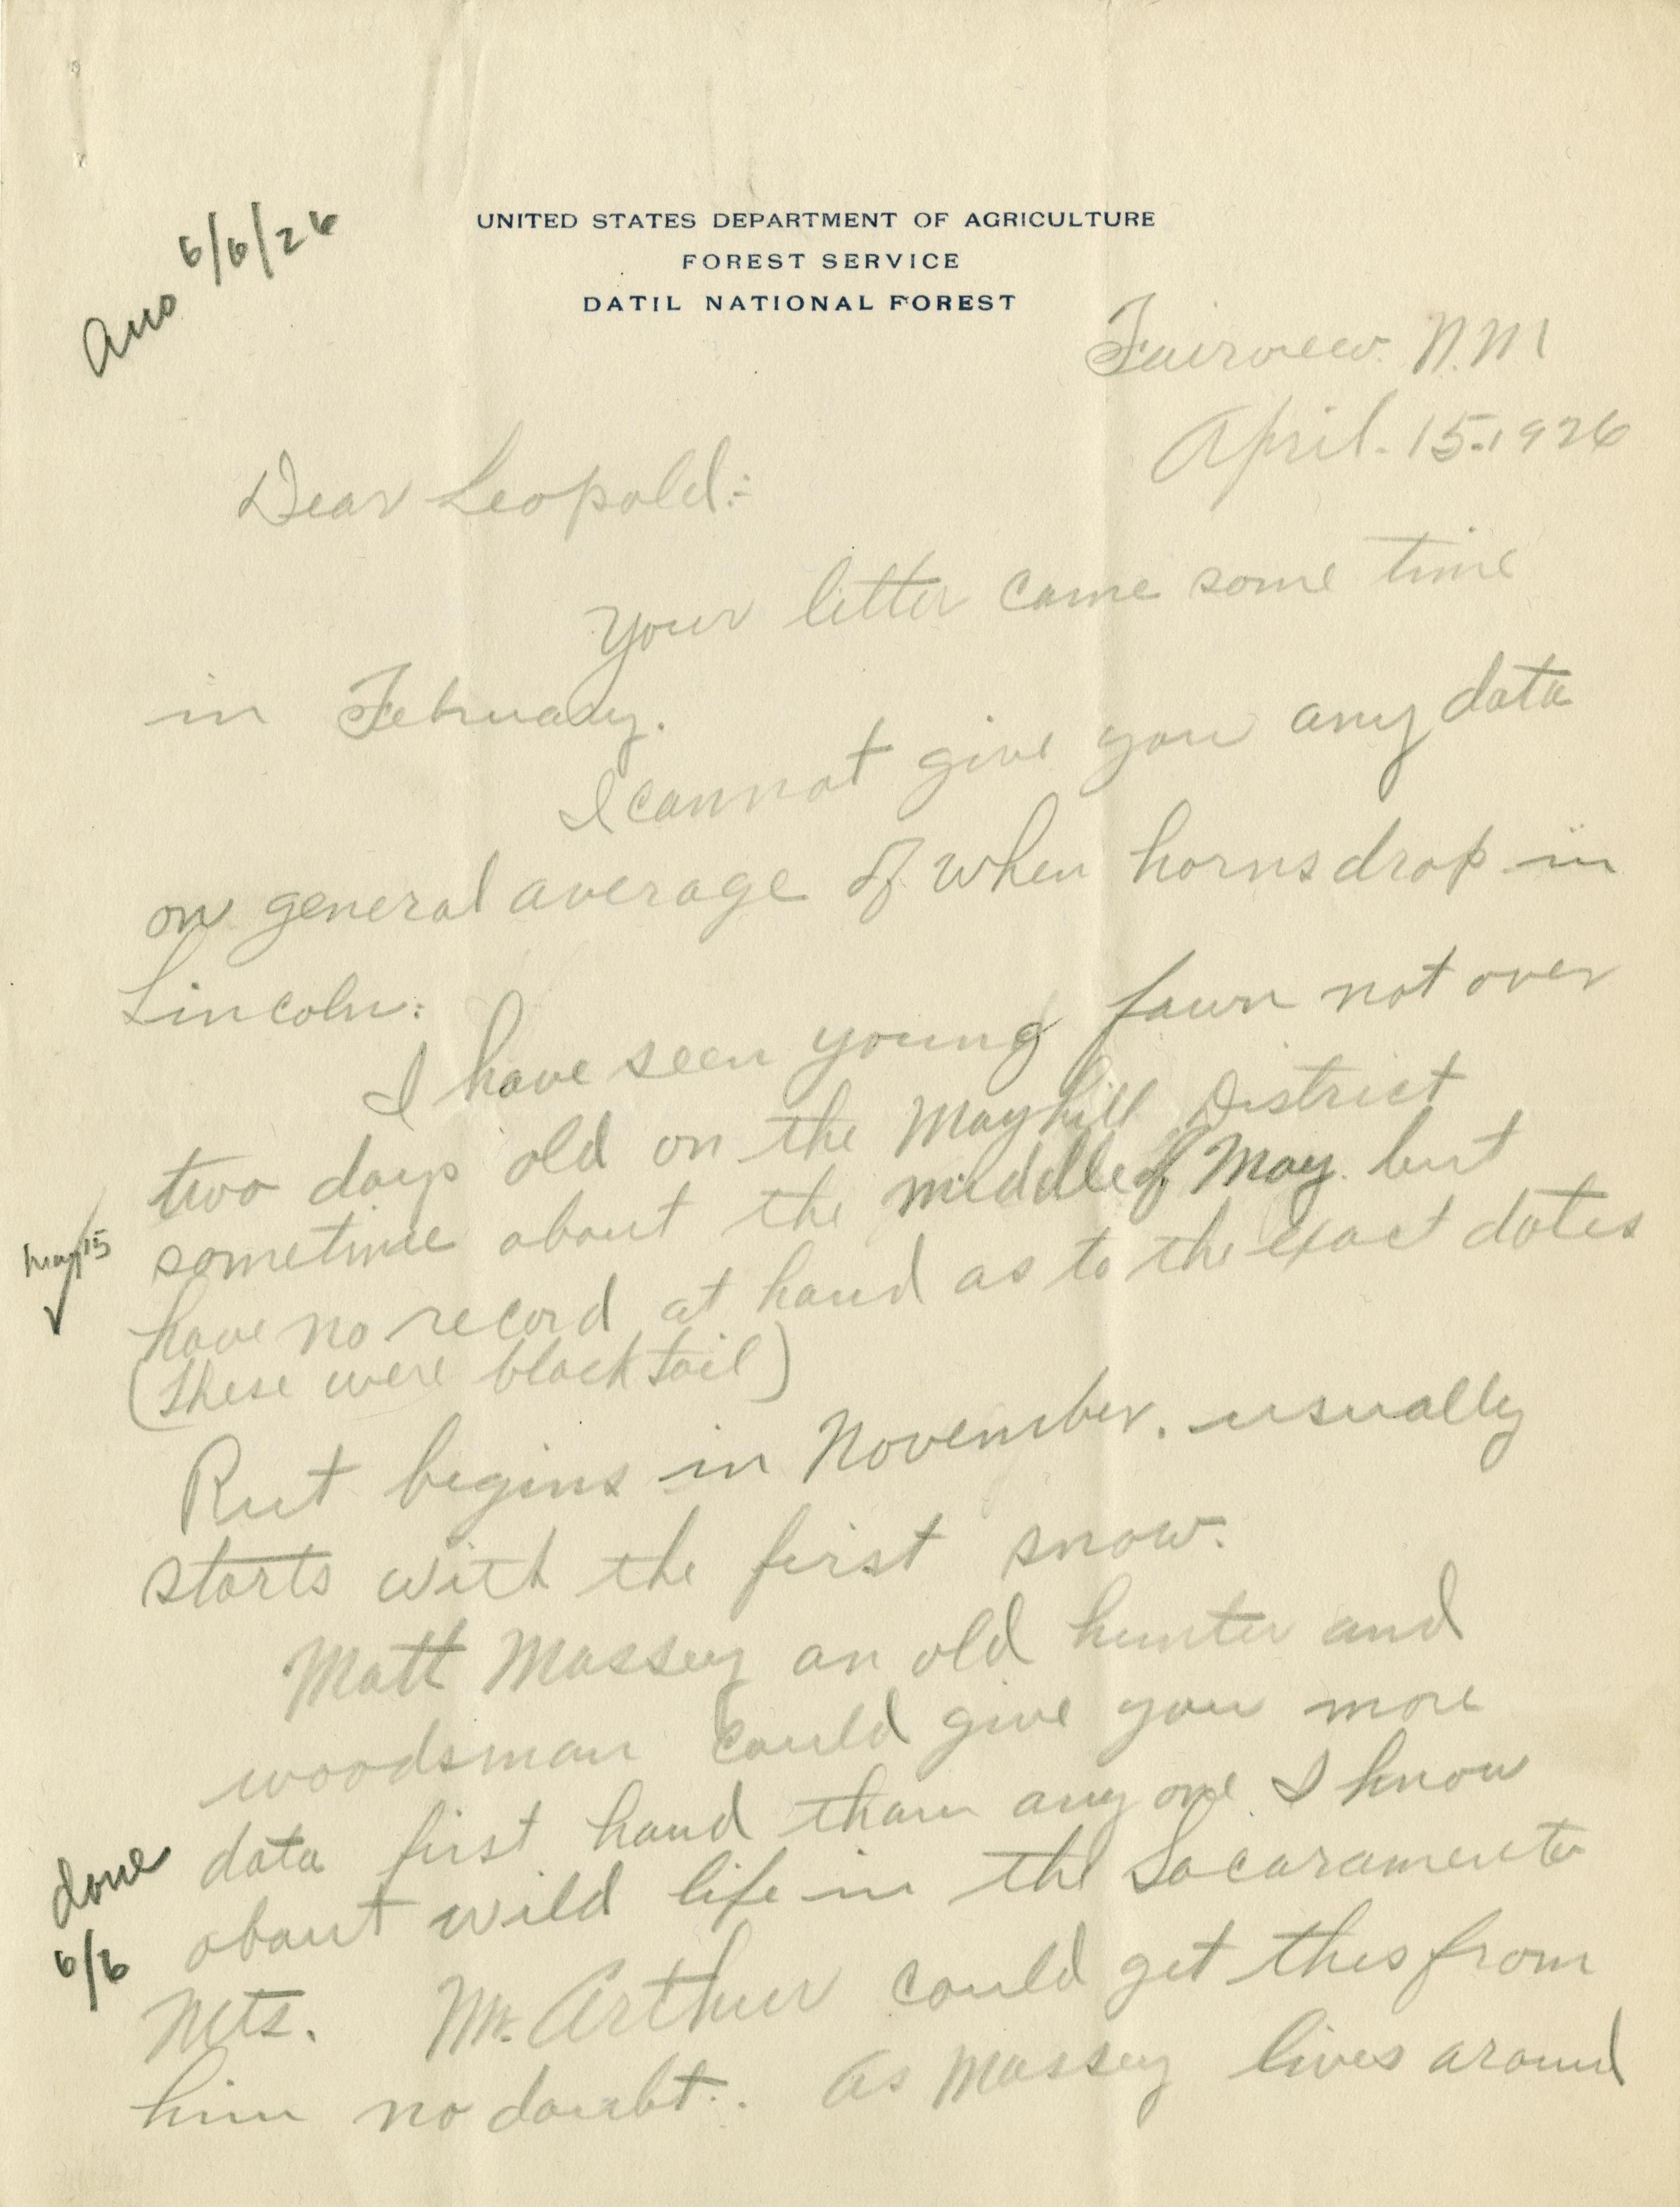 UNITED STATES DEPARTMENT OF AGRICULTURE
FOREST SERVICE
DATIL NATIONAL FOREST
Ans 6/6/26
Fairview. N.M
April. 15. 1926
Dear Leopold:-
Your letter came some time
in February.
I cannot give you any data
on general average of when horns drop in
Lincoln:
I have seen young fawn not over
two days old on the Mayhill District
sometime about the middle of May. but
May 15
have no record at hand as to the exact dates
(these were blacktail)
Rut begins in November. usually
starts with the first snow.
Matt Massey an old hunter and
woodsman could give you more
data first hand than any one I know
done
about wild life in the Sacaramento
6/6
Mts. Mr. Arthur could get this from
him no doubt.. As Massey lives around